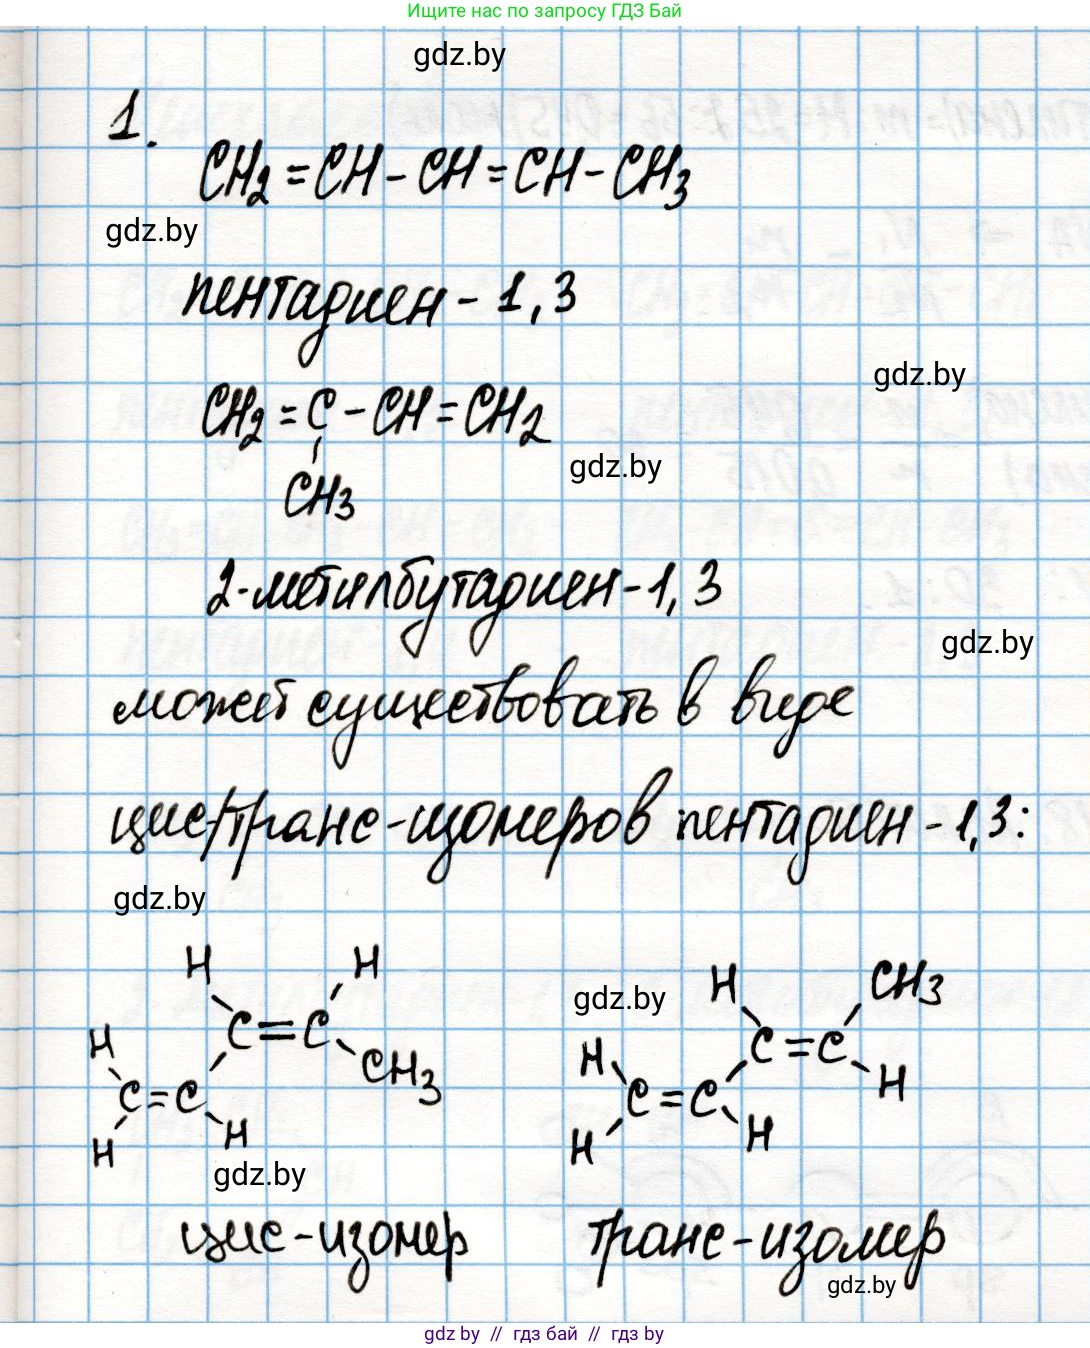 Ищите нас по запросу ГДЗ Бай
gdz.by
1.
CH2=CH-CH=CH-CH3
gdz.by
пентадиен-1,3
gdz.by
CH2=C-CH=CH2
gdz.by
CH3
2-метилбутадиен-1,3
gdz.by
может существовать в виде
цис/транс-изомеров пентадиен-1,3:
gdz.by
H H H CH3
gdz.by
C=C C=C
H CH3 H H
C=C C=C
H H H H
gdz.by
цис-изомер транс-изомер
gdz.by
gdz by // гдз бай // гдз by